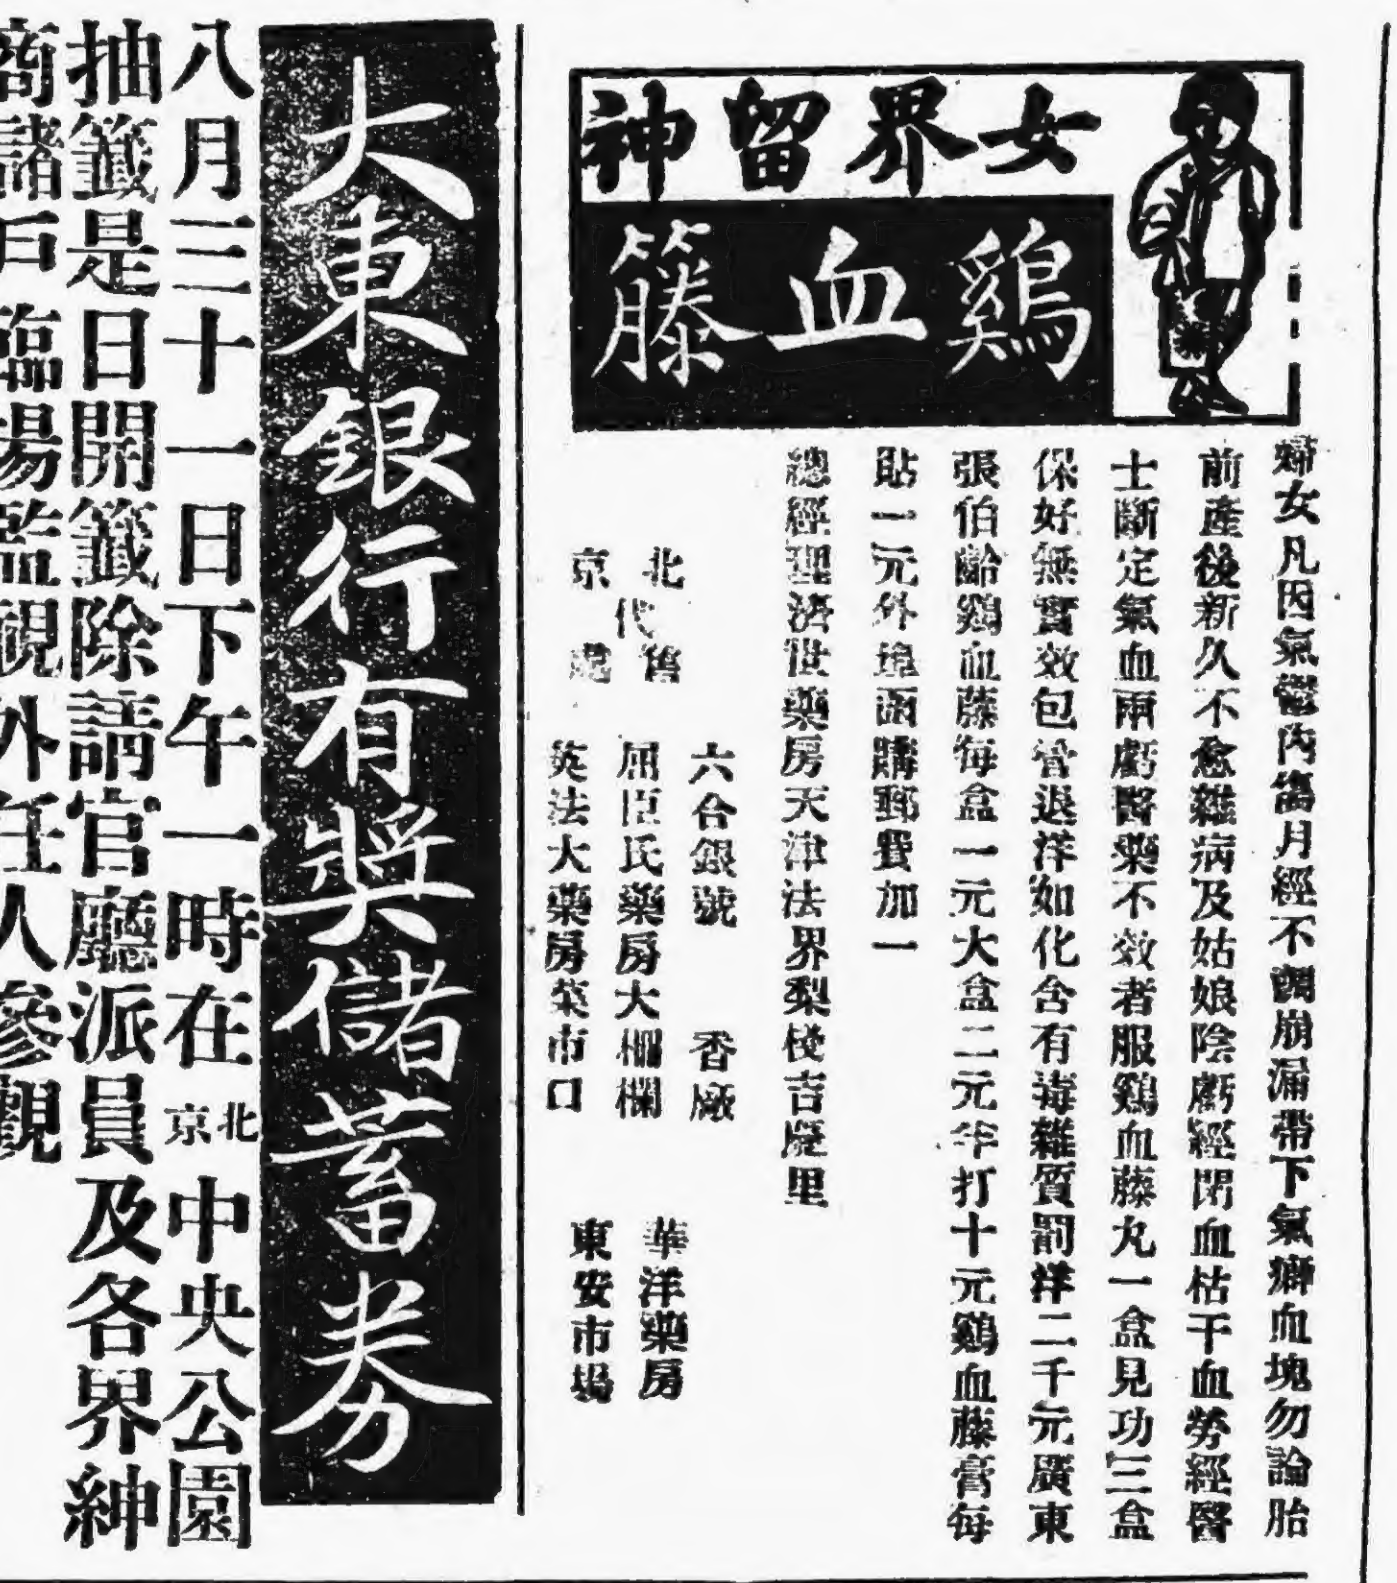 女界留神
鷄血籐
婦女凡因氣鬱內傷月經不調崩漏帶下氣癖血塊勿論胎
前產後新久不愈雜病及姑娘陰虧經閉血枯干血勞經醫
士斷定氣血兩虧醫藥不效者服鷄血藤丸一盒見功三盒
保好無實效包管退洋如化含有毒雜質罰洋二千元廣東
張伯齡鷄血藤每盒一元大盒二元半打十元鷄血藤膏每
貼一元外埠函購郵費加一
總經理濟世藥房天津法界梨棧吉慶里
北京代售處
六合銀號 香廠
屈臣氏藥房大柵欄
英法大藥房菜市口
華洋藥房
東安市場
大東銀行有奬儲蓄券
八月三十一日下午一時在北京中央公園
抽籤是日開籤除請官廳派員及各界紳
商儲戶臨場監視外任人參觀